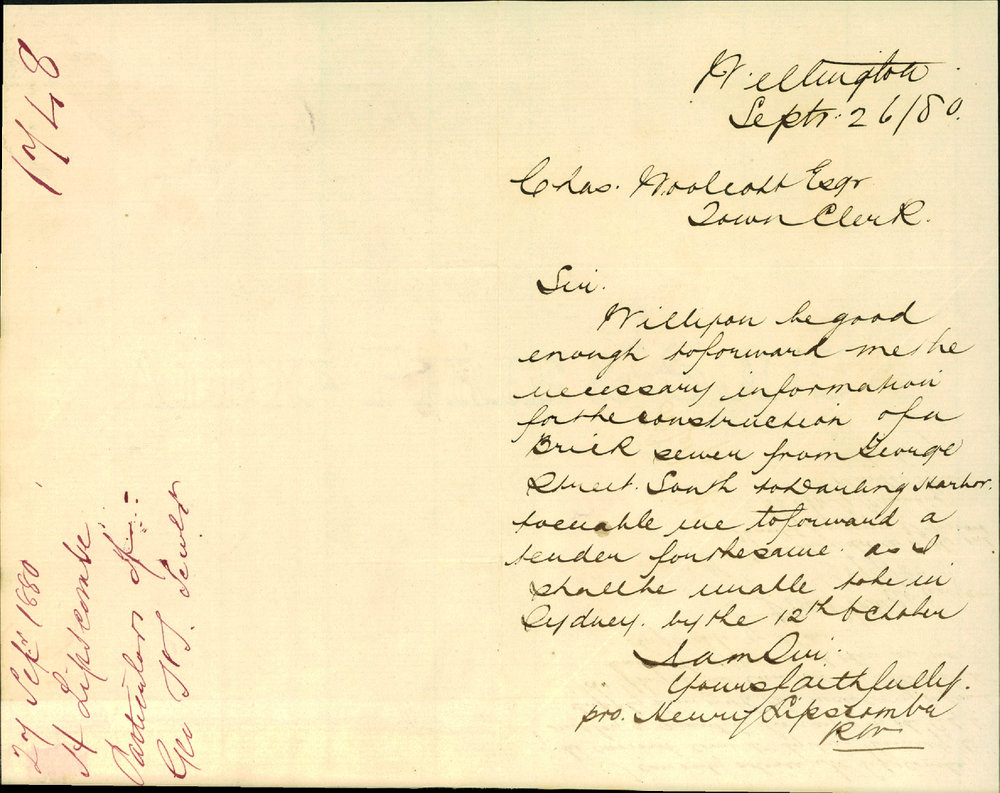 Wellington
Septr. 26/80.
Chas. Woolcott Esqr
Town Clerk.
Sir.
Will you be good
enough to forward me the
necessary information
for the construction of a
Brick sewer from George
Street. South to Darling Harbor.
to enable me to forward a
tender for the same. as I
shall be unable to be in
Sydney. by the 12th October
I am Sir.
Yours faithfully.
pro. Henry Lipscombe
1748
27 Sepr. 1880
H Lipscombe
Particulars of
Geo St. Sewer